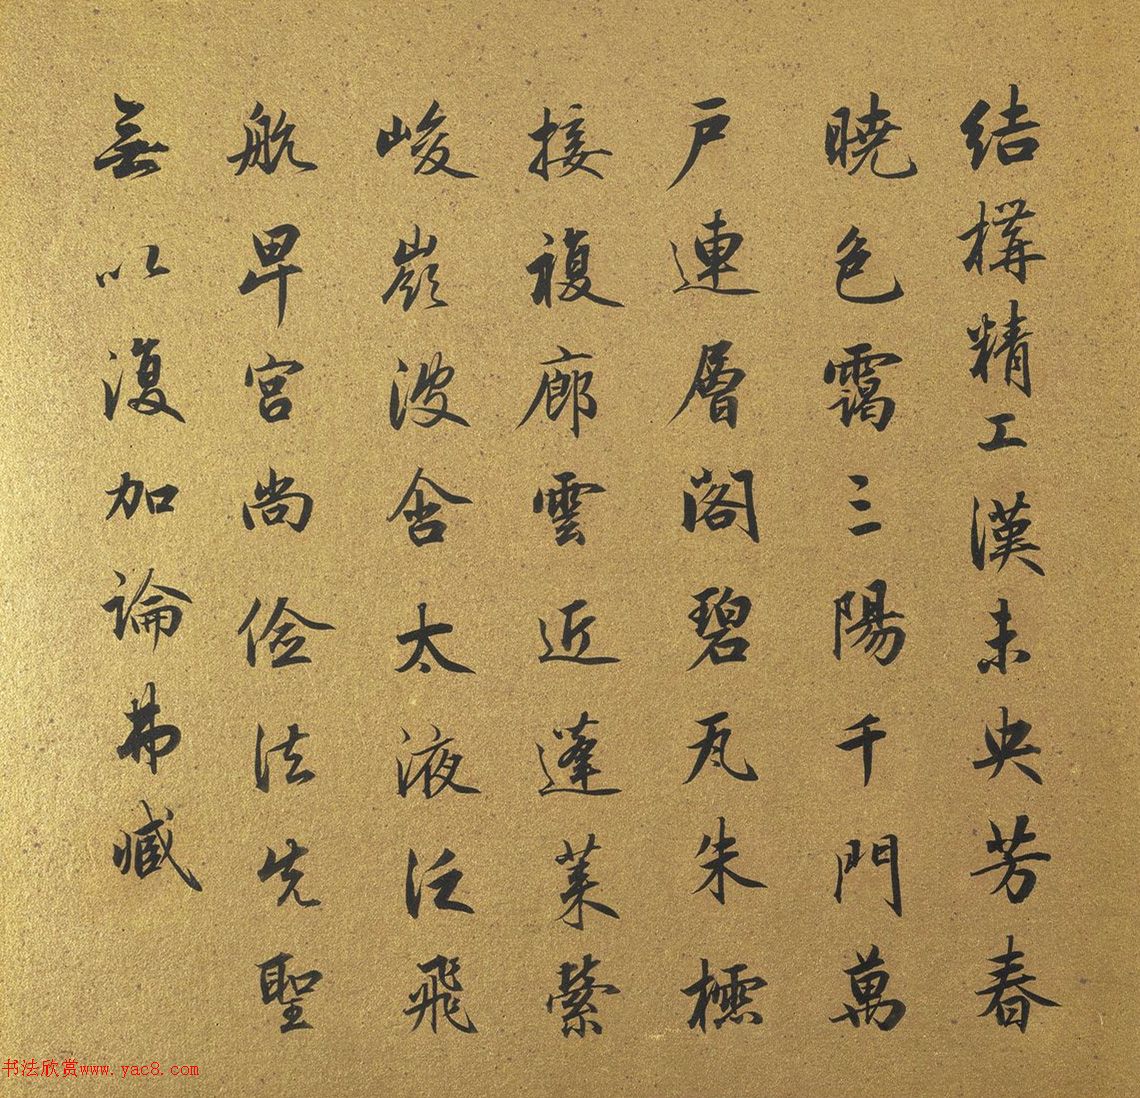 結構精工漢未央芳春
曉色靄三陽千門萬
戶連層閣碧瓦朱櫺
接複廊雲近蓬萊縈
峻嶺波含太液泛飛
航卑宮尚儉法先聖
無以復加論弗臧
书法欣赏www.yac8.com